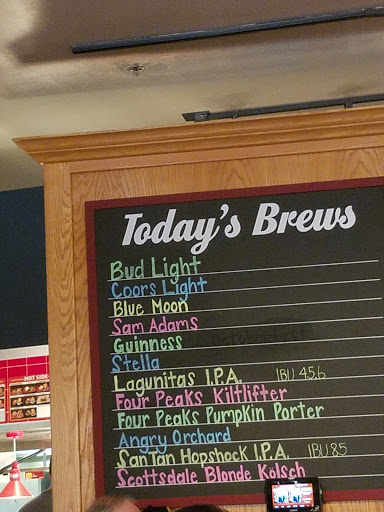 Today's Brews
Bud Light
Coors Light
Blue Moon
Sam Adams
Guinness
Stella
Lagunitas I.P.A. IBU 45.6
Four Peaks Kiltlifter
Four Peaks Pumpkin Porter
Angry Orchard
San Tan Hopshock I.P.A. IBU 85
Scottsdale Blonde Kölsch
HOT SIDE